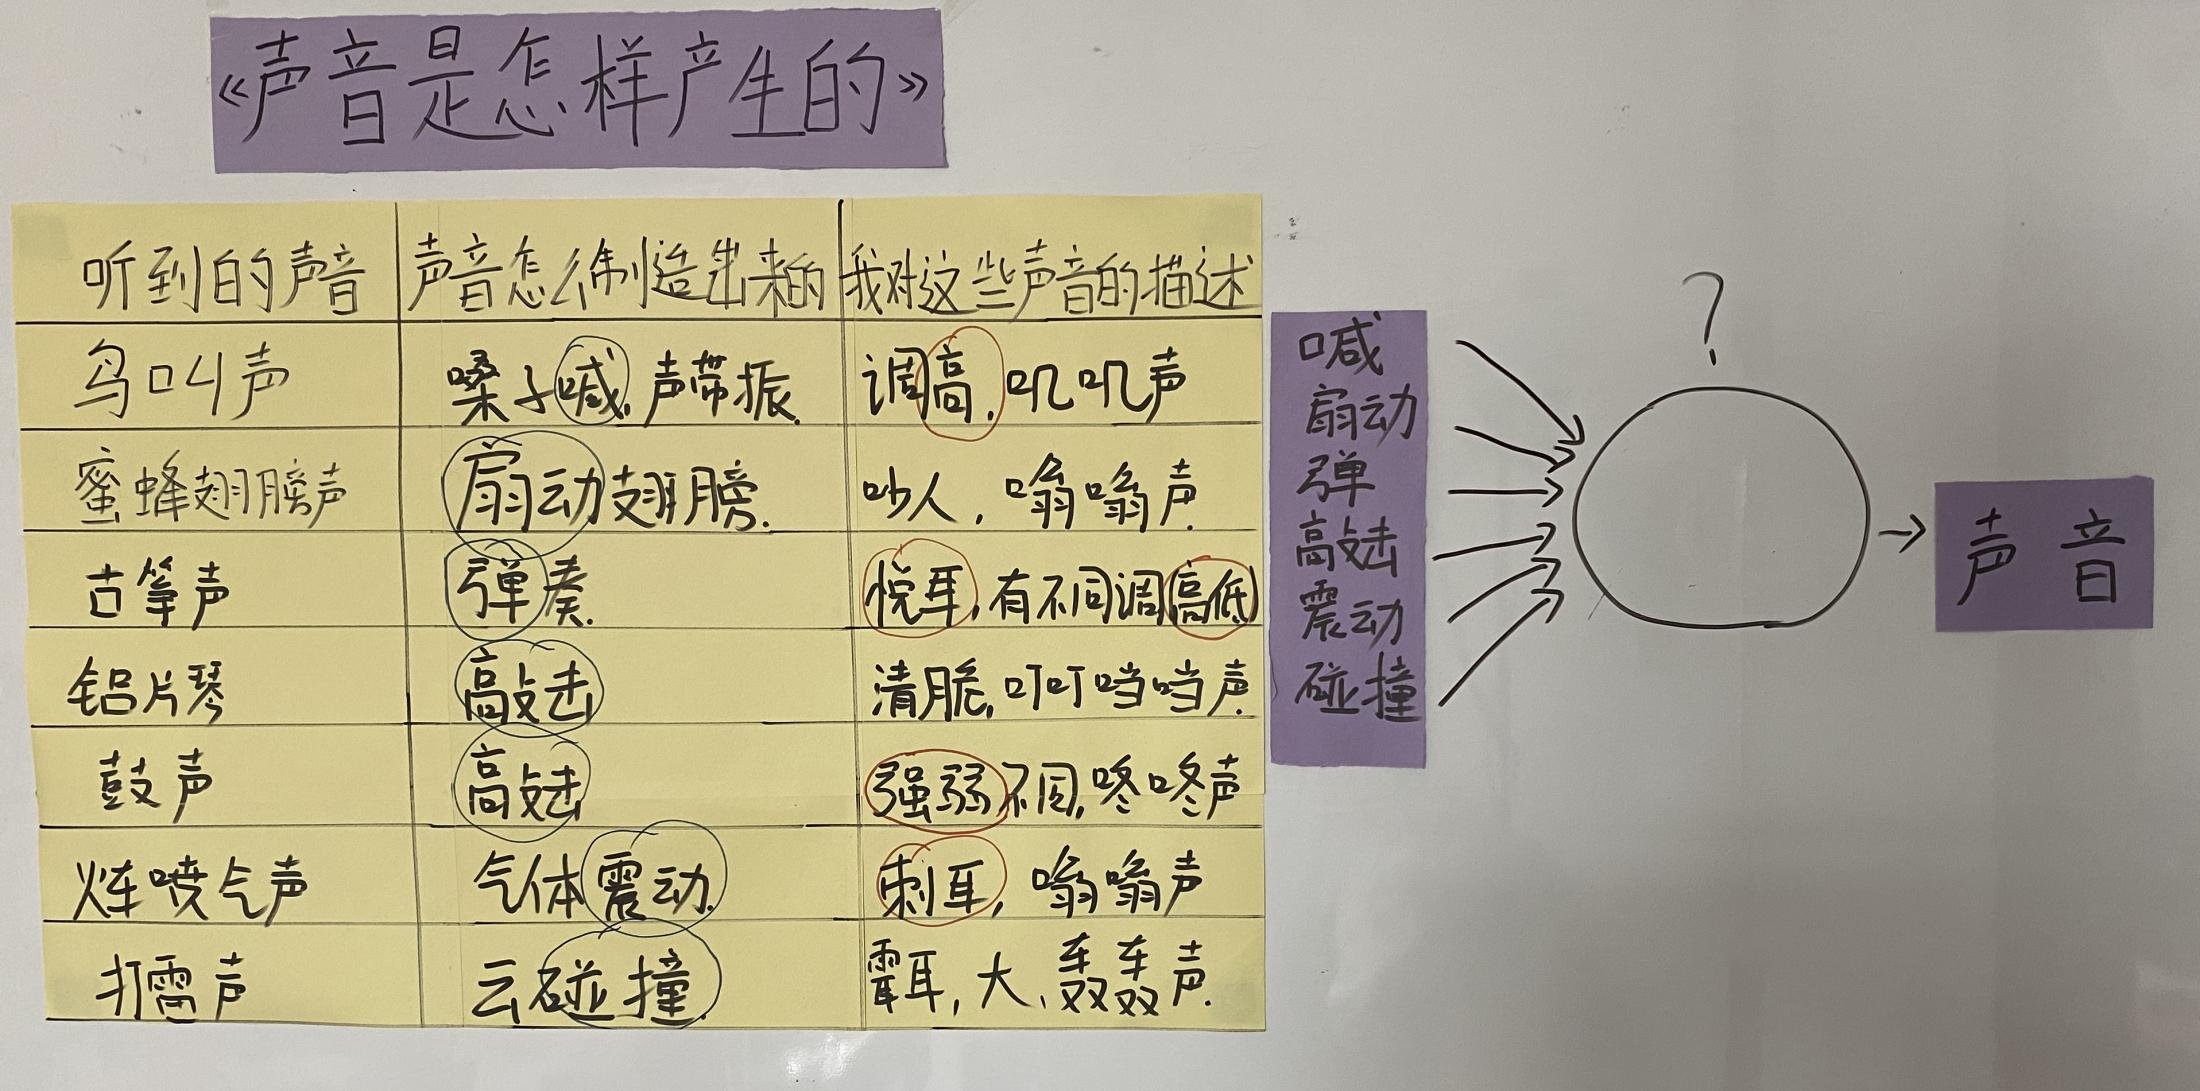 《声音是怎样产生的》
听到的声音 声音怎么制造出来的 我对这些声音的描述
鸟叫声 嗓子喊,声带振. 调高,叽叽声
蜜蜂翅膀声 扇动翅膀. 吵人,嗡嗡声.
古筝声 弹奏. 悦耳,有不同调高低
铝片琴 敲击 清脆,叮叮当当声.
鼓声 敲击 强弱不同,咚咚声
火车喷气声 气体震动. 刺耳,嗡嗡声
打雷声 云碰撞. 震耳,大、轰轰声.
喊
扇动
弹
敲击
震动
碰撞
?
声音